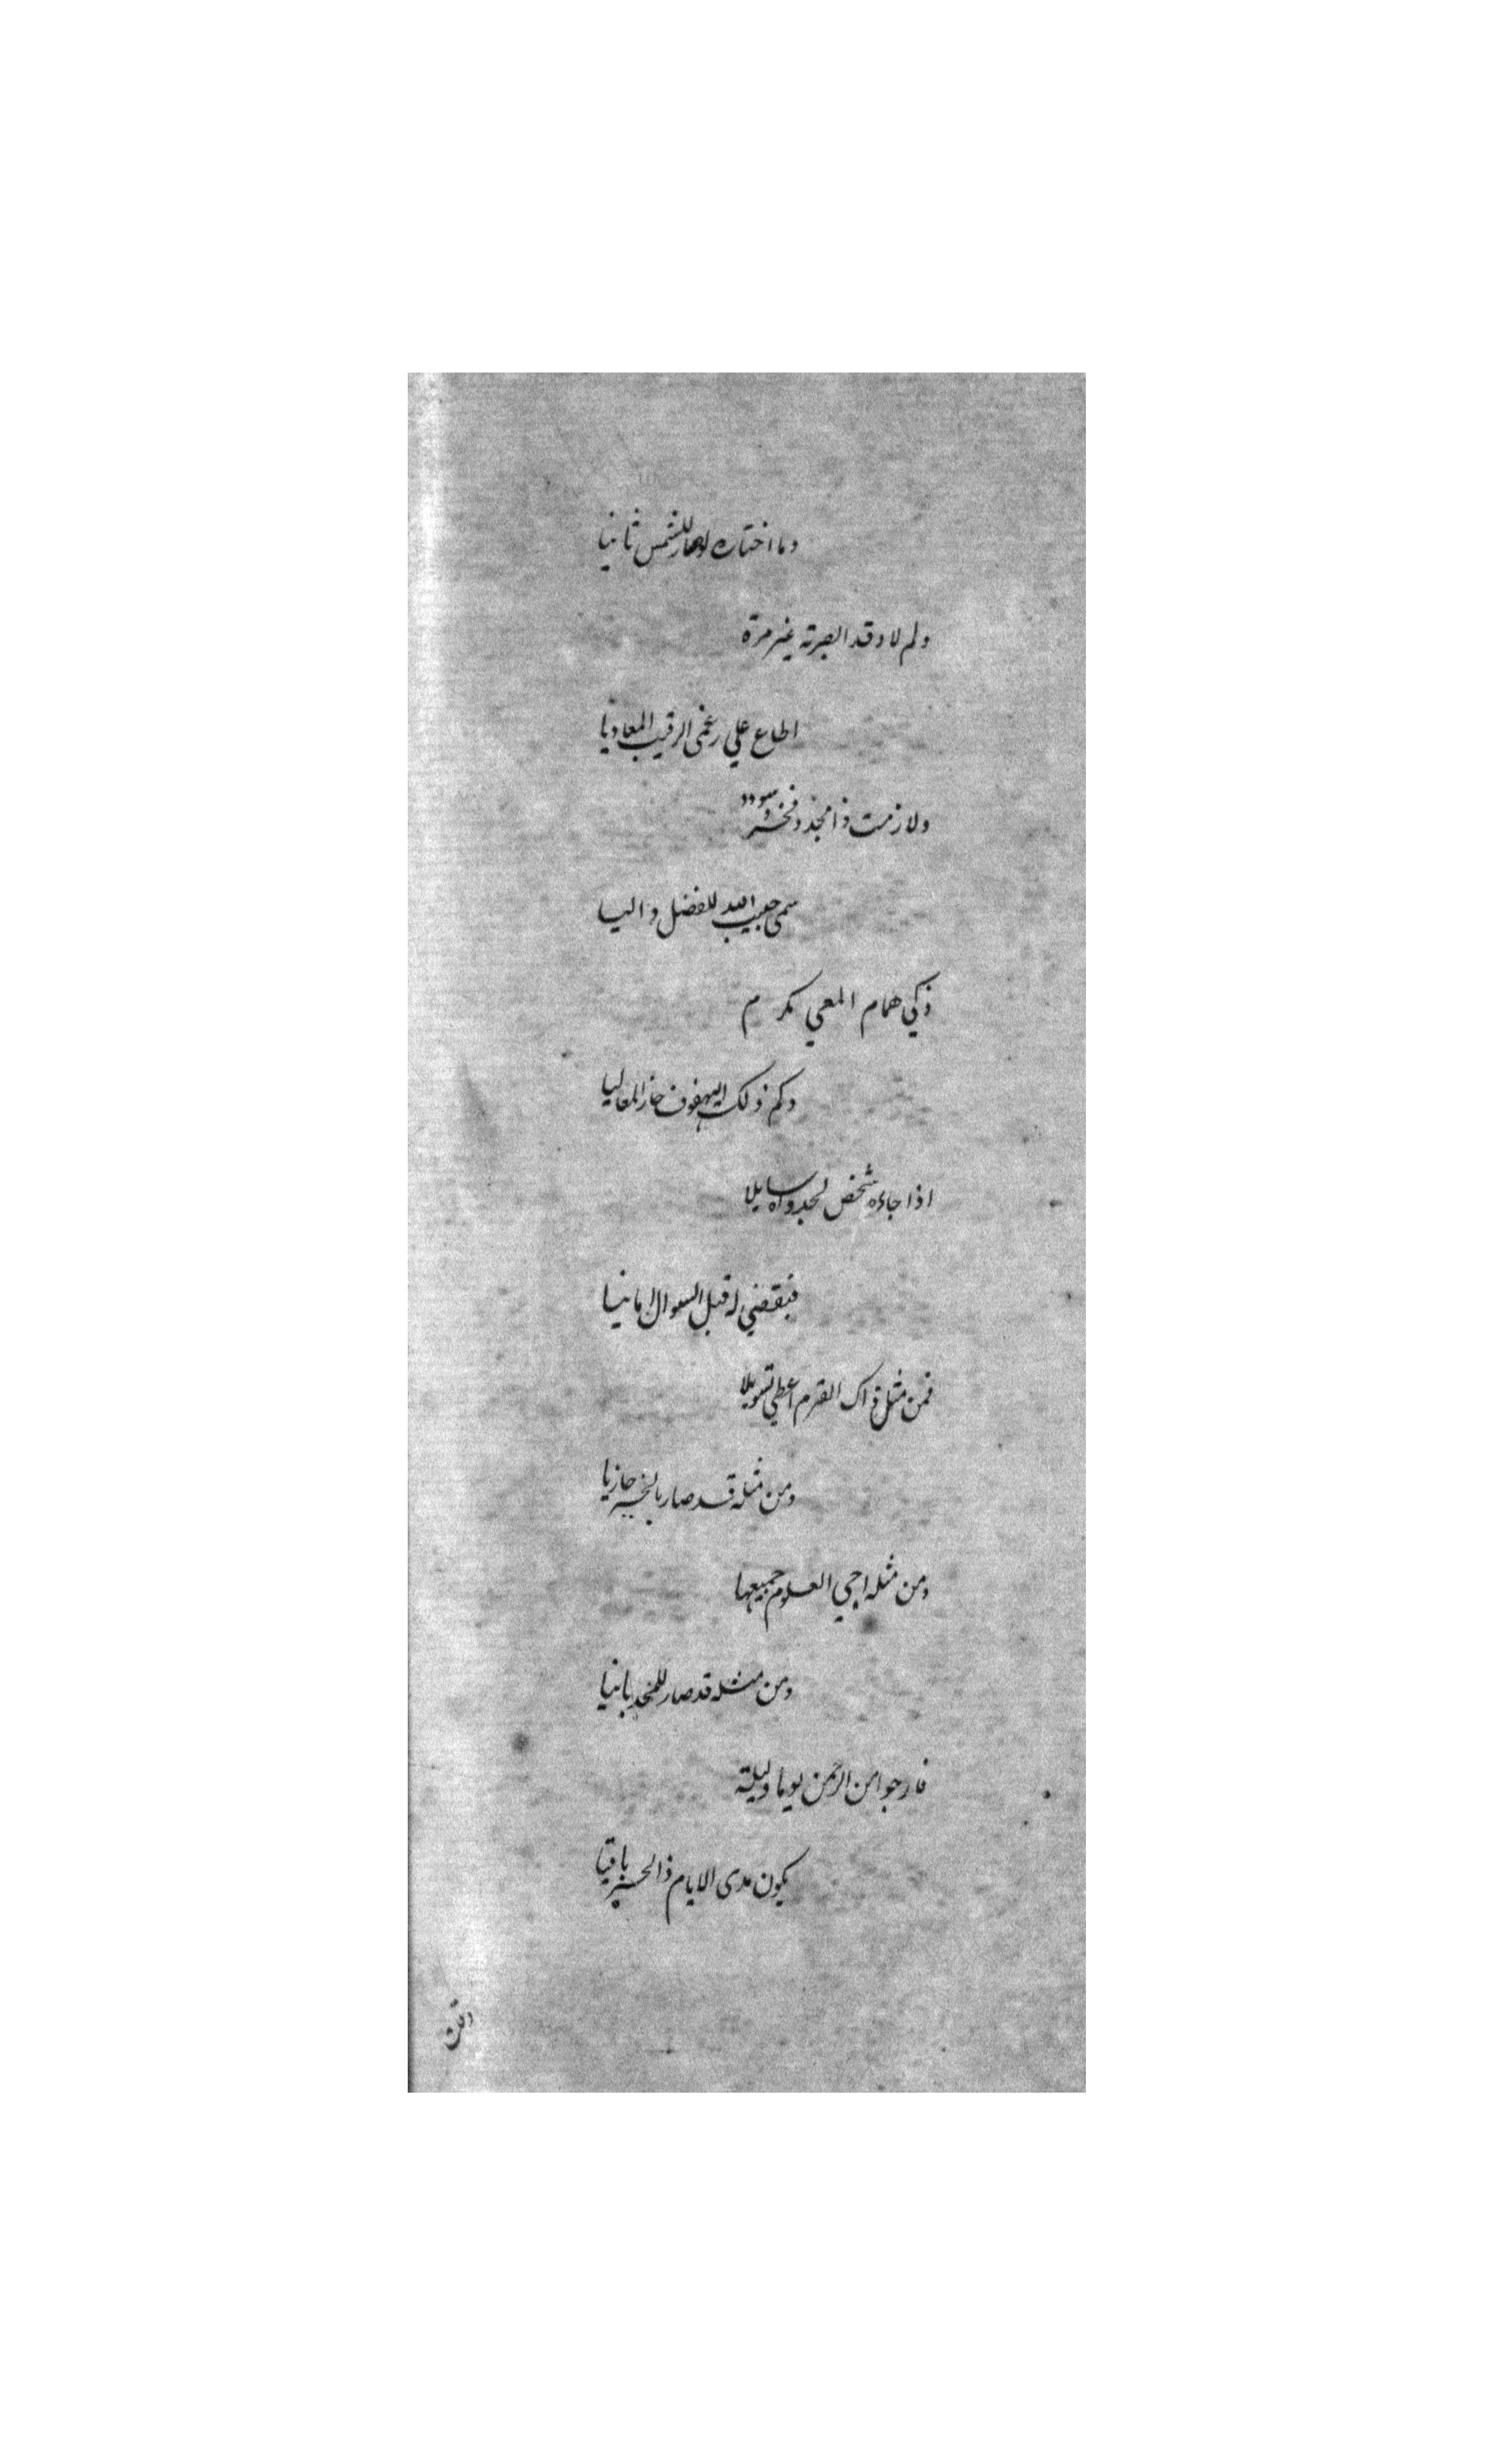 وما اختاره لو صار للشمس ثانيا
ولم لا وقد ابصرته غير مرة
اطاع علي رغمي الرقيب المعاديا
ولازمت ذا مجد وفخر وسودد
سمي حبيب الله للفضل واليا
ذكي همام المعي مكرم
وكم ذلك حاز المعاليا
اذا جاءه شخص لجدواه سايلا
فيقضي له قبل السوال امانيا
فمن مثل ذاك القرم اعطي
ومن مثله قد صار بالخير جازيا
ومن مثله احي العلوم جميعها
ومن مثله قد صار للمجد بانيا
فارجو من الرحمن يوما وليلة
يكون مدى الايام ذا الحبر باقيا